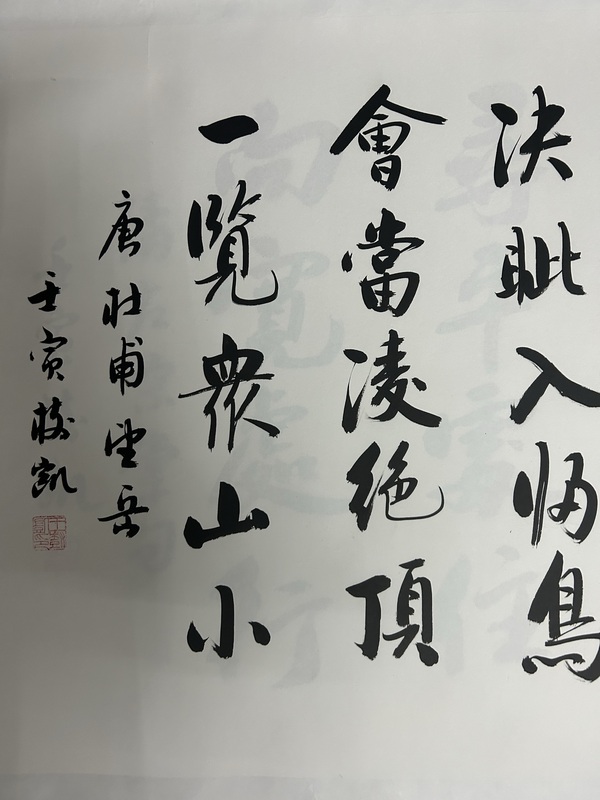 决眦入归鳥
會當凌絶頂
一覽衆山小
唐杜甫望岳
壬寅 凯